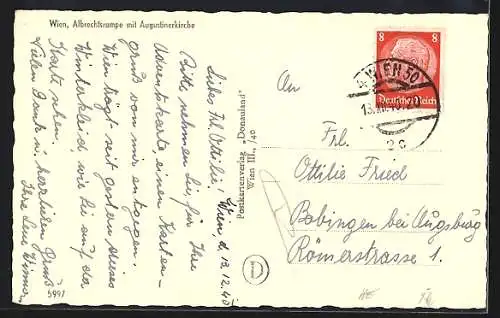 Wien, Albrechtsrampe mit Augustinerkirche
Wien, d. 13.12.40
Liebes Frl. Ottilie!
Bitte, nehmen Sie für Ihre
Adventskarte einen Karten-
gruß von mir entgegen.
Wien trägt seit gestern dieses
Winterkleid wie Sie auf der
Karte sehen.
Vielen Dank u. herzlichen Gruß
Ihre Lene
5991
Postkartenverlag "Donauland"
Wien III., 40
D
8 8
Deutsches Reich
WIEN 50
An
Frl.
Ottilie Fried
Bobingen bei Augsburg
Römerstrasse 1.